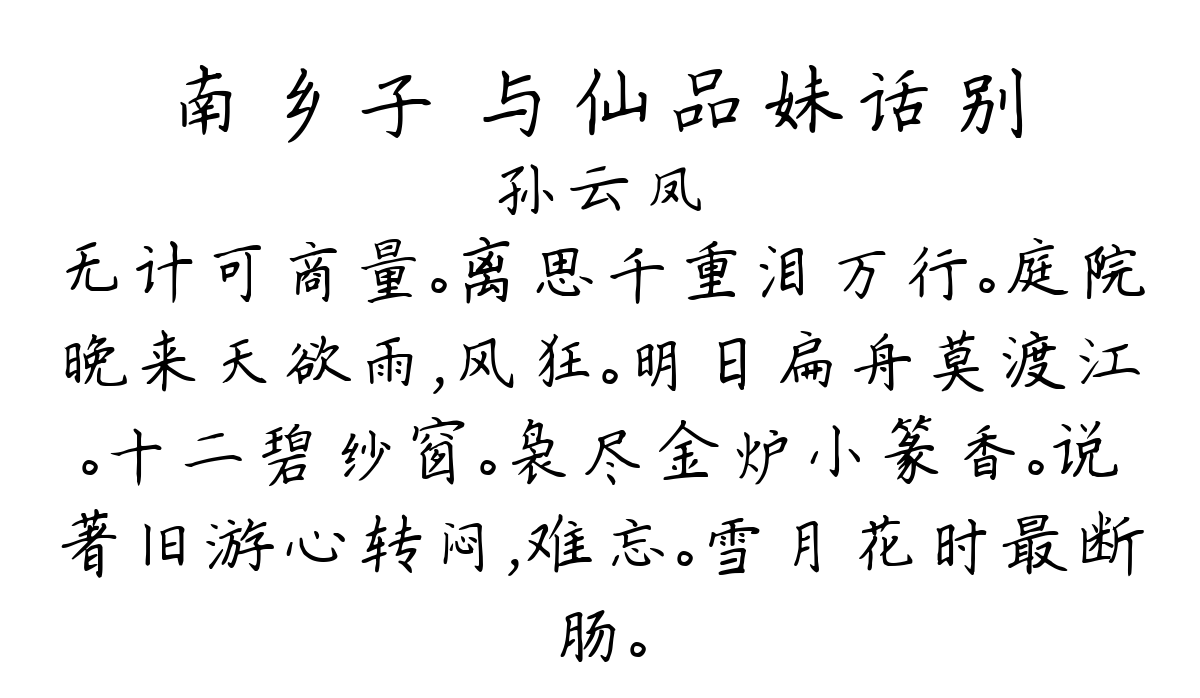 南乡子 与仙品妹话别
孙云凤
无计可商量。离思千重泪万行。庭院
晚来天欲雨,风狂。明日扁舟莫渡江
。十二碧纱窗。袅尽金炉小篆香。说
著旧游心转闷,难忘。雪月花时最断
肠。